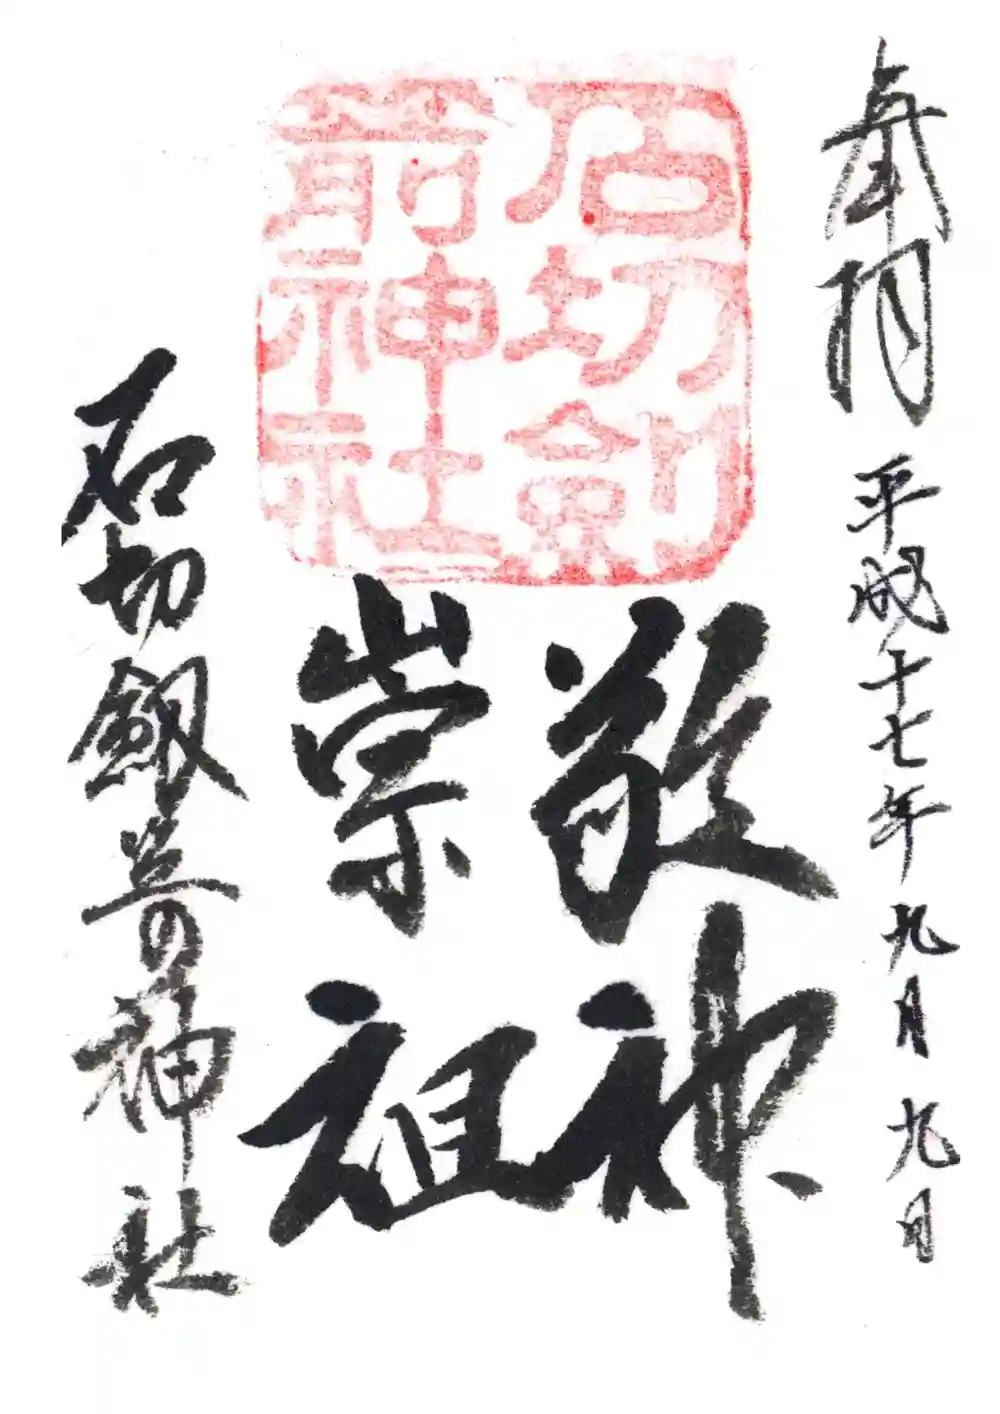 奉拝
平成十七年九月九日
石切劔
箭神社
敬神
崇祖
石切劔箭神社